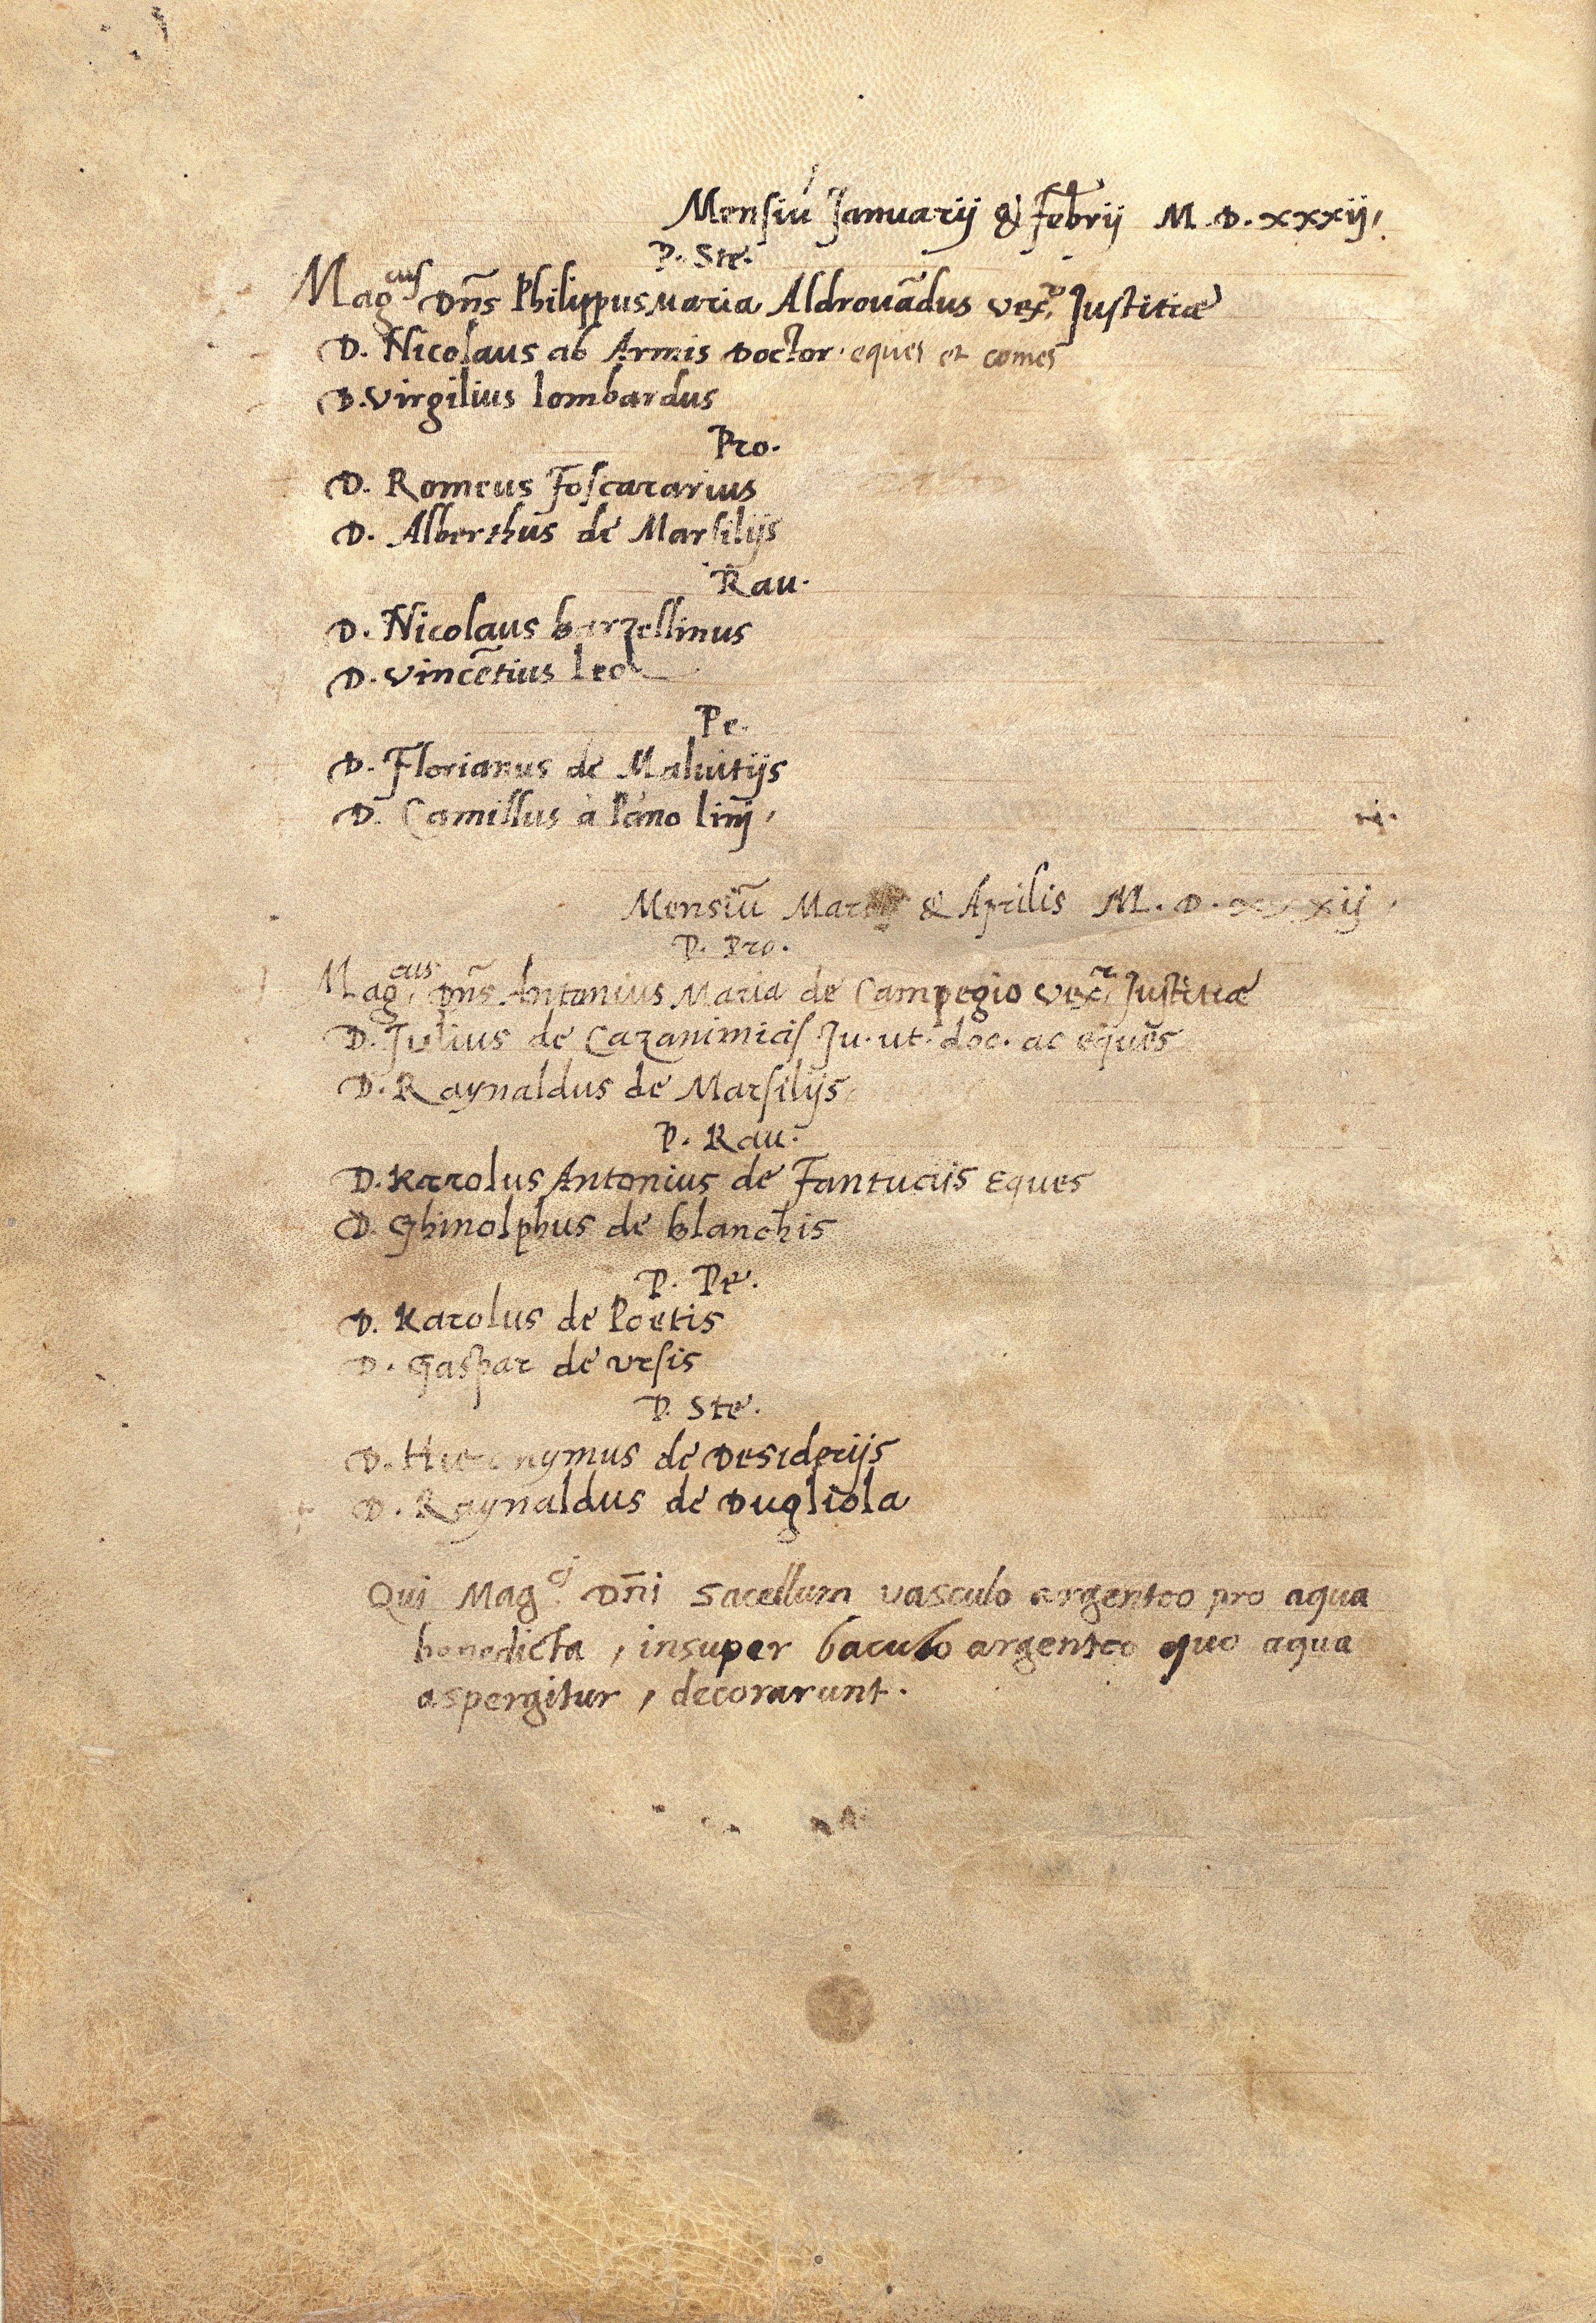 Mensiũ Januarij & Febrij M.D.xxxij,
P. Ste.
Mag.cus Dñs Philippus Maria Aldrouãdus vex.r Justitiæ
D. Nicolaus ab Armis Doctor. eques et comes
D. Virgilius lombardus
Pro.
D. Romeus Foscararius
D. Alberthus de Marsilijs
Rau.
D. Nicolaus barzellinus
D. Vincẽtius leo
Pe.
D. Florianus de Maluitijs
D. Camillus à Pãno linij,
Mensiũ & Aprilis M.D.xxxij,
P. Pro.
Mag.cus Dñs Antonius Maria de Campegio vex.r Justitiæ
D. Julius de Cazanimicis Ju. ut. doc. ac eques
D. Raynaldus de Marsilijs
P. Rau.
D. Karolus Antonius de Fantuciis Eques
D. Ghinolphus de blanchis
P. Pe.
D. Karolus de Poetis
D. Gaspar de Ursis
P. Ste.
D. Hieronymus de Desiderijs
D. Raynaldus de Dugliola
Qui Mag.ci Dñi Sacellum vasculo argenteo pro aqua
benedicta, insuper baculo argenteo quo aqua
aspergitur, decorarunt.